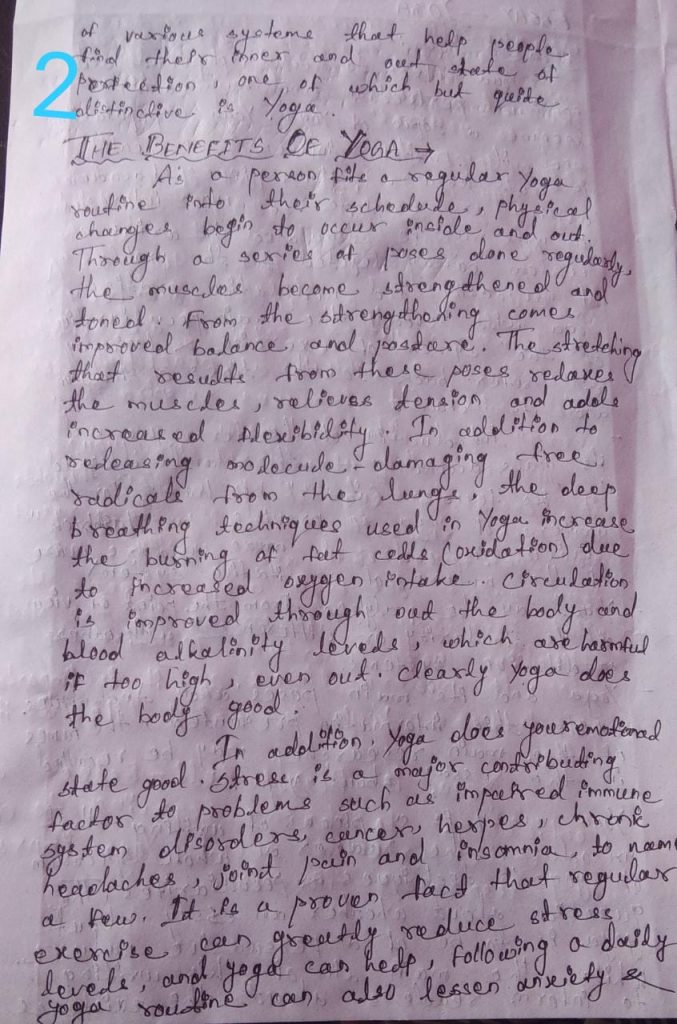 of various systems that help people
find their inner and out state of
2
perfection, one of which but quide
distinctive is Yoga.
THE BENEFITS OF YOGA →
As a person fits a regular Yoga
routine into their schedule, physical
changes begin to occur inside and out.
Through a series of poses done regularly,
the muscles become strengthened and
toned. From the strengthening comes
improved balance and posture. The stretching
that results from these poses relaxes
the muscles, relieves tension and adds
increased flexibility. In addition to
releasing molecule-damaging free
radicals from the lungs, the deep
breathing techniques used in Yoga increase
the burning of fat cells (oxidation) due
to increased oxygen intake. Circulation
is improved through out the body and
blood alkalinity levels, which are harmful
if too high, even out. Clearly Yoga does
the body good.
In addition, Yoga does your emotional
state good. Stress is a major contributing
factor to problems such as impaired immune
system disorders, cancer, herpes, chronic
headaches, joint pain and insomnia, to name
a few. It is a proven fact that regular
exercise can greatly reduce stress
levels, and yoga can help, following a daily
yoga routine can also lessen anxiety &